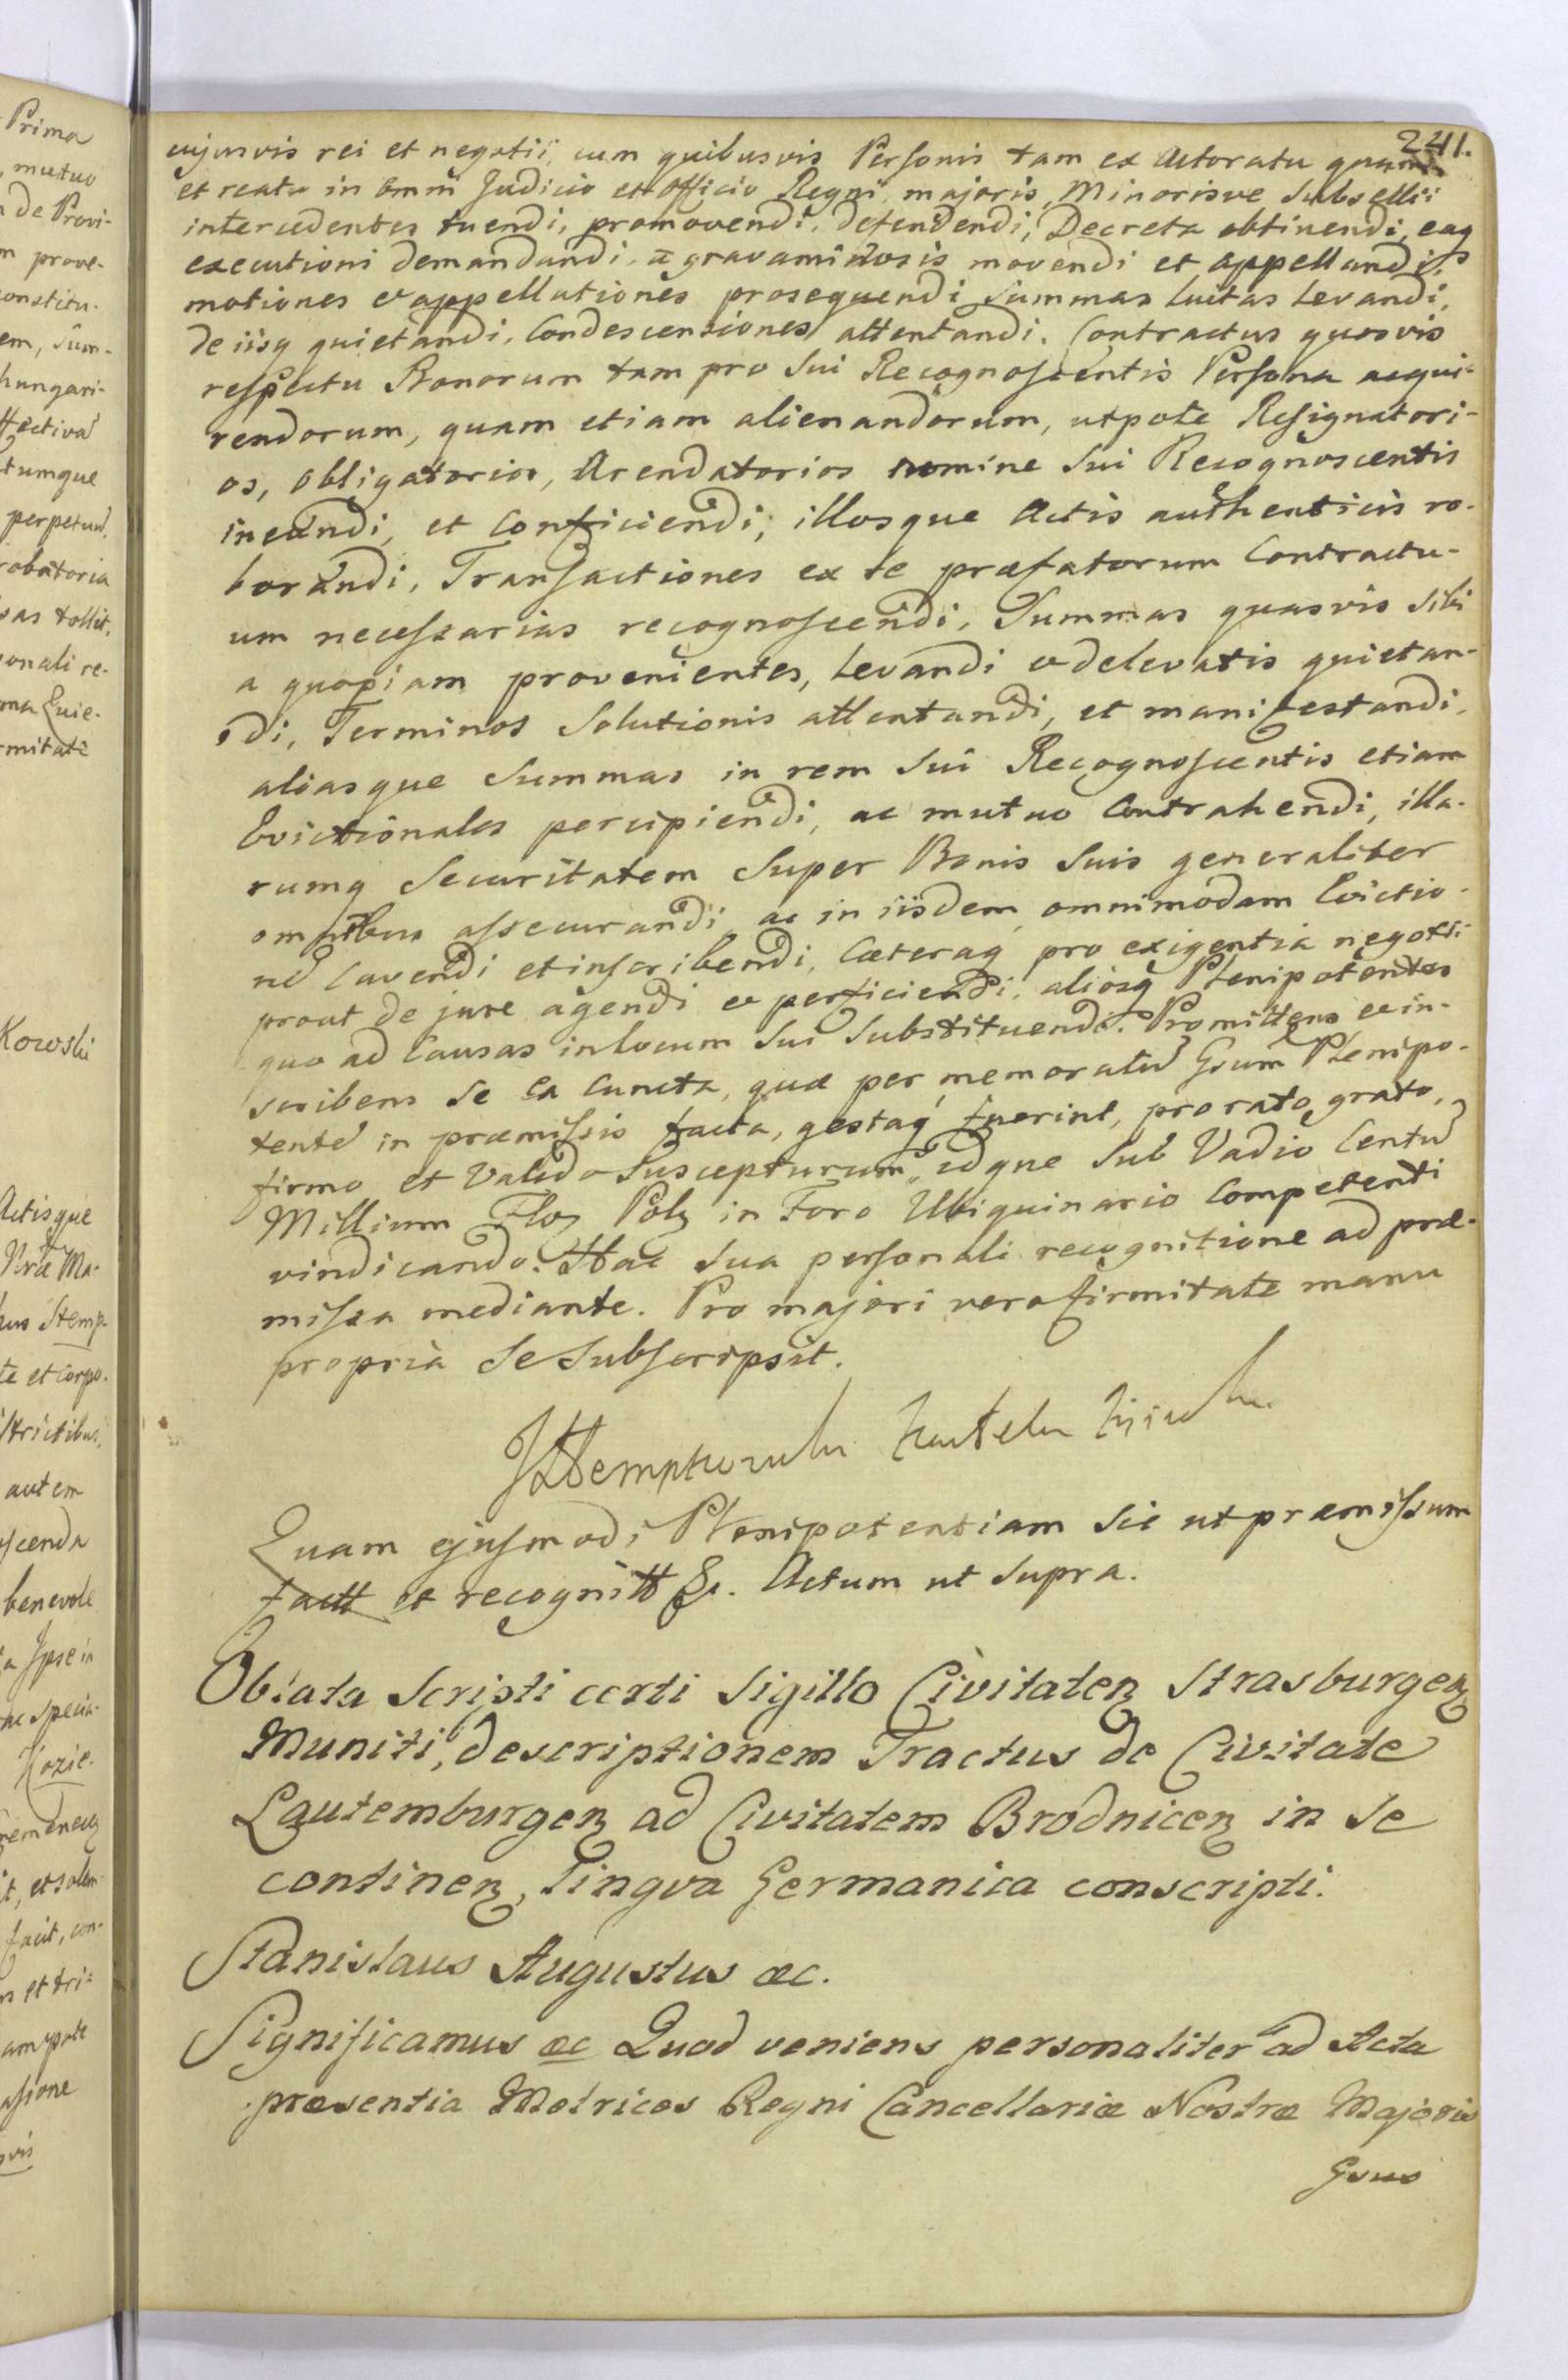 241.
cujusvis rei et negotii, cum quibusvis Personis tam ex Actoratu quam
et reatu in omni Judicio et Officio Regni, majoris, Minorisve Subsellii
intercedentes tuendi, promovendi, defendendi, Decreta obtinendi, eaq
executioni demandandi, a gravaminosis movendi et appellandi,
motiones et appellationes prosequendi Summas luitas levandi,
de iisq quietandi, Condescensiones attentandi. Contractus quosvis
respectu Bonorum tam pro Sui Recognoscentis Persona acqui-
rendorum, quam etiam alienandorum, utpote Resignatori-
os, obligatorios, Arendatorios nomine Sui Recognoscentis
ineundi, et Conficiendi, illosque Actis authenticis ro-
borandi, Transactiones ex re præfatorum Contractu-
um necessarias recognoscendi, Summas quasvis Sibi
a quopiam provenientes, levandi et de levatis quietan-
di, Terminos Solutionis attentandi, et manifestandi,
aliasque Summas in rem Sui Recognoscentis etiam
Evictionales percipiendi, ac mutuo Contrahendi, illa-
rumq Securitatem Super Bonis Suis generaliter
omnibus assecurandi, ac in iisdem omnimodam Evictio-
ne Cavendi et inscribendi, Cæteraq pro exigentia negotii
prout de jure agendi et perficiendi, aliosq Plenipotentes
quo ad Causas in locum Sui Substituendi. Promittens et in-
scribens Se Ea Cuncta, quæ per memoratu Gsum Plenipo-
tente in præmissis facta, gestaq fuerint, pro rato, grato,
firmo et valido Suscepturum, idque Sub Vadio Centu
Millium Flor Pol in Foro Ubiquinario Competenti
vindicando. Hac Sua personali recognitione ad præ-
missa mediante. Pro majori vero firmitate manu
propria Se Subscripsit.
Quam ejusmodi Plenipotentiam Sic ut præmissum
factt et recognitt &. Actum ut Supra.
Oblata Scripti certi Sigillo Civitaten Strasburgen
Muniti, descriptionem Tractus de Civitate
Lautemburgen ad Civitatem Brodnicen in Se
continen, Lingva Germanica conscripti.
Stanislaus Augustus &c.
Significamus &c Quod veniens personaliter ad Acta
præsentia Metrices Regni Cancellariæ Nostræ Majoris
Gsus